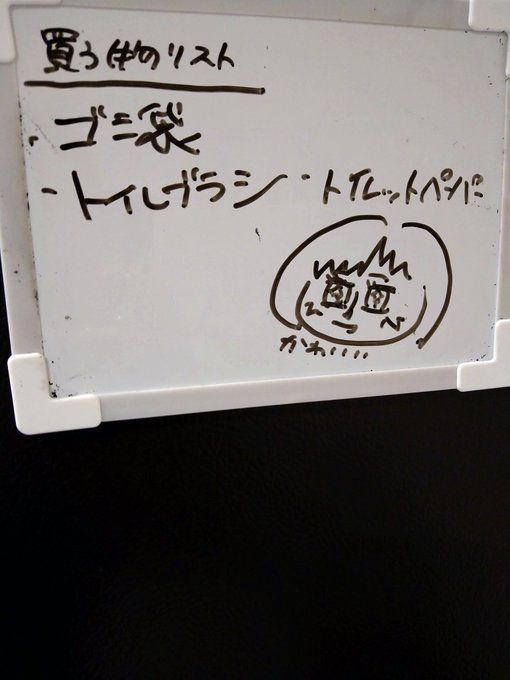 買う物リスト
・ゴミ袋
・トイレブラシ ・トイレットペーパー
かわいい..